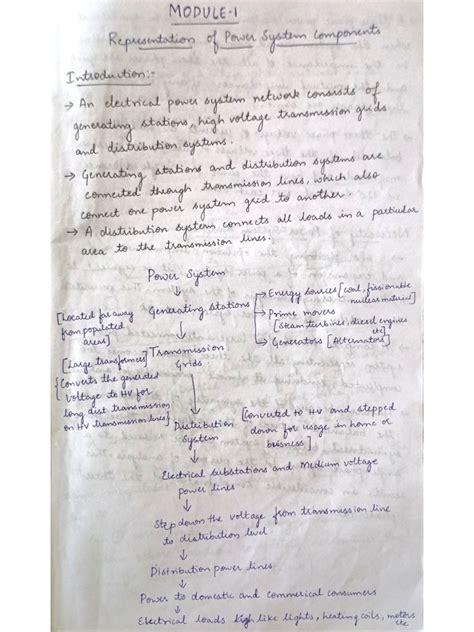 MODULE-1
Representation of Power System Components
Introduction:-
→ An electrical power system network consists of
generating stations, high voltage transmission grids
and distribution systems.
→ Generating stations and distribution systems are
connected through transmission lines, which also
connect one power system grid to another.
→ A distribution system connects all loads in a particular
area to the transmission lines.
Power System
↓
[Located far away
from populated
areas]
Generating Stations
→ Energy sources [coal, fissionable
nuclear material]
→ Prime movers
[Steam turbines, diesel engines
etc]
→ Generators [Alternators]
[Large transformers]
{Converts the generated
voltage to HV for
long dist transmission
on HV transmission lines}
Transmission
Grids
↓
Distribution
System
[Converted to HV and stepped
down for usage in home or
buisness]
↓
Electrical substations and Medium voltage
power lines
↓
Step down the voltage from transmission line
to distribution level
↓
Distribution power lines
↓
Power to domestic and commerical consumers
↓
Electrical loads like lights, heating coils, motors
etc